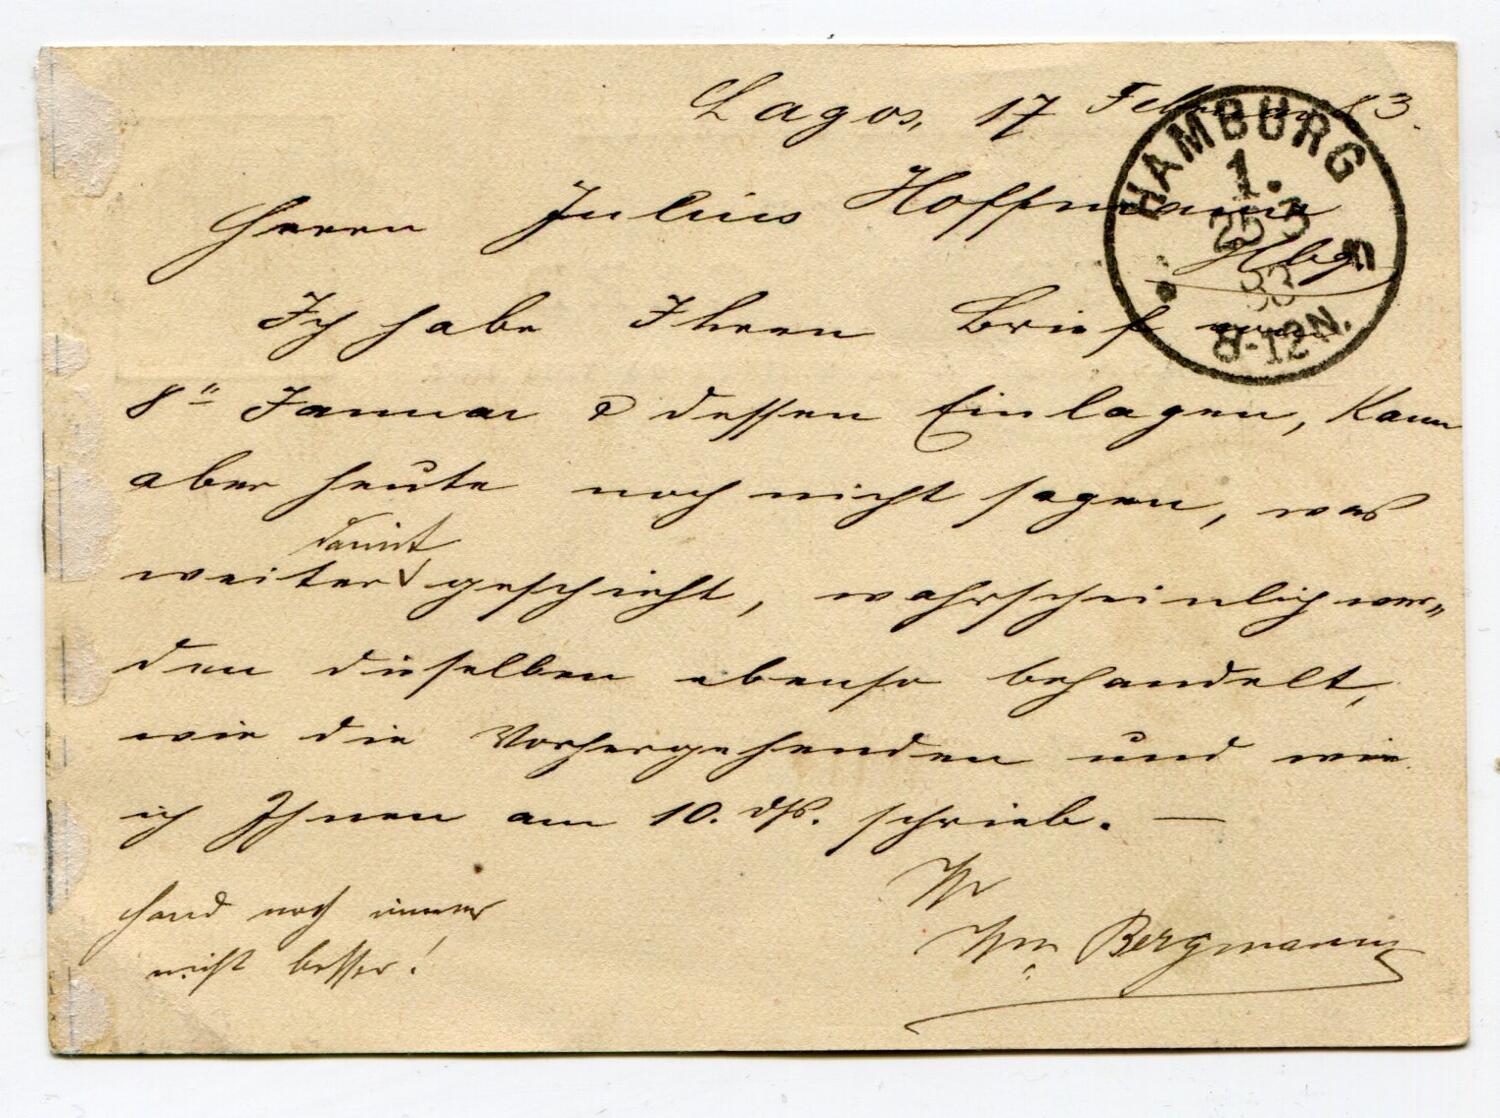 Lagos, 17 Februar 83.
HAMBURG
1.
25 3
83
8-12N.
Herrn Julius Hoffmann
Hbg.
Ich habe Ihren Brief vom
8tn Januar & dessen Einlagen, kann
aber heute noch nicht sagen, was
damit
weiter geschieht, wahrscheinlich wer„
den dieselben ebenso behandelt,
wie die Vorhergehenden und wie
ich Ihnen am 10. ds. schrieb. —
Wm. Bergmann
Hand noch immer
nicht besser!